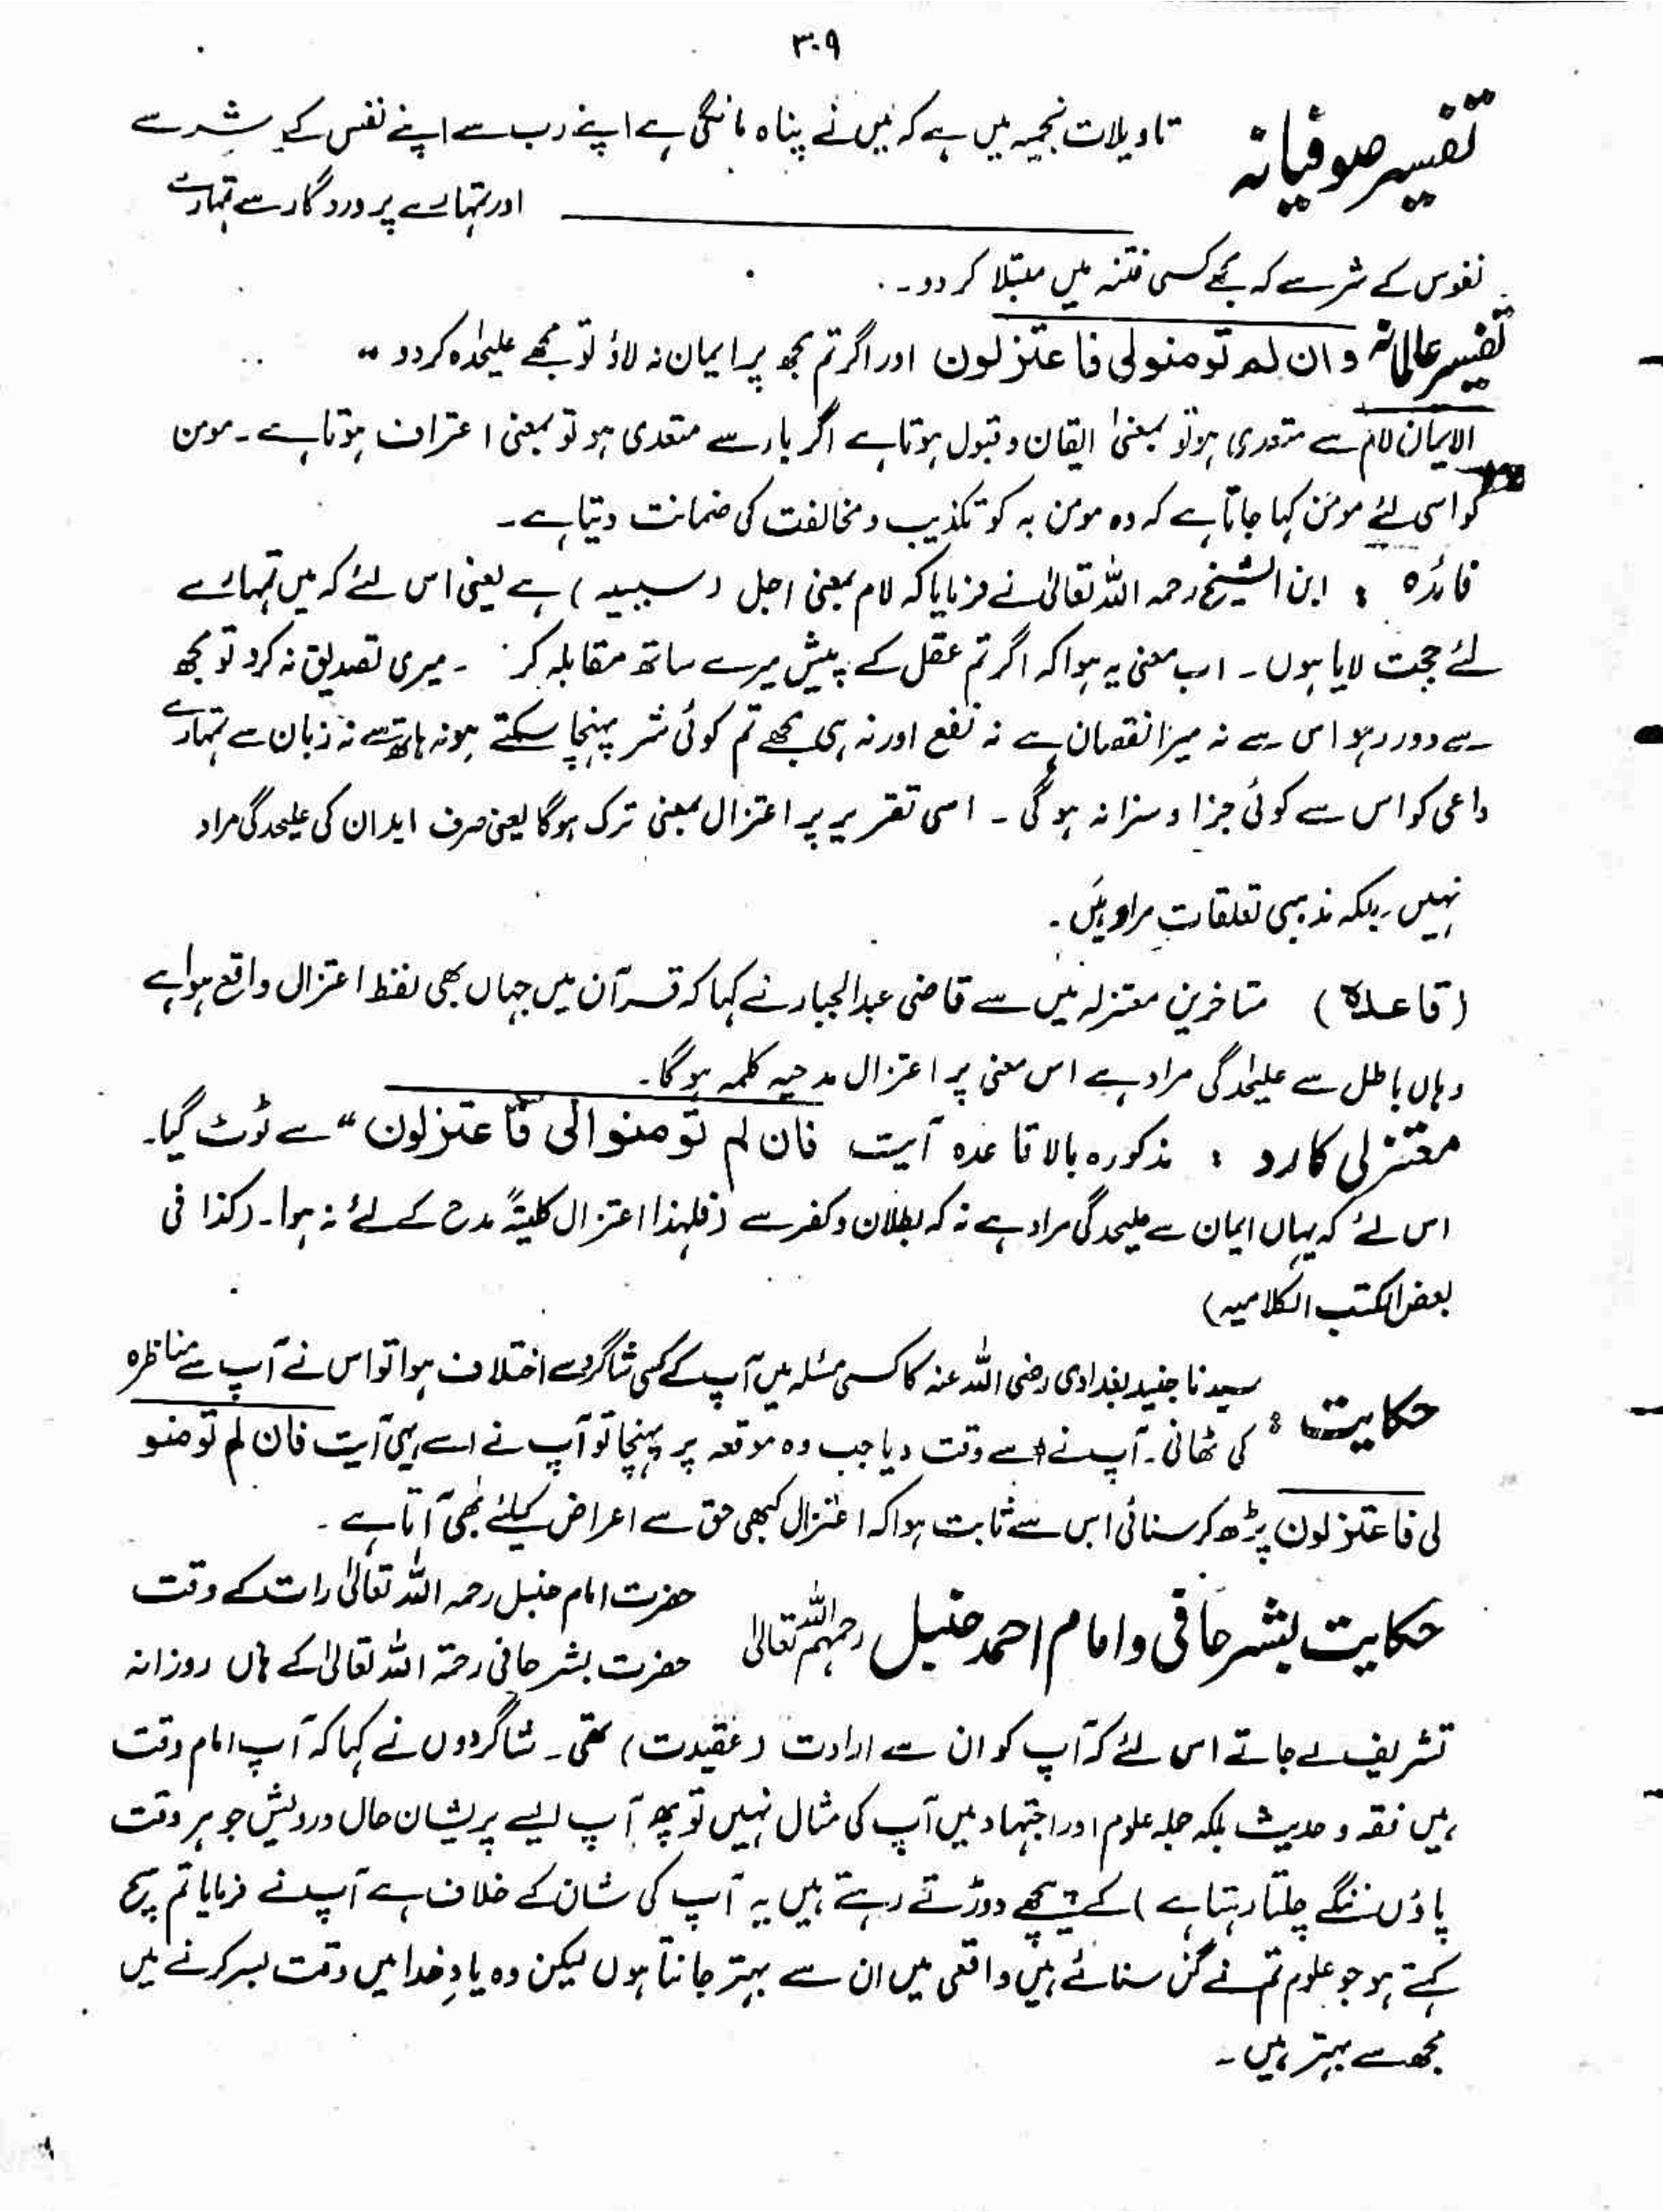 ۳۰۹
تفسیر صوفیانہ تاویلات نجمیہ میں ہے کہ میں نے پناہ مانگی ہے اپنے رب سے اپنے نفس کے شر سے
اور تمہارے پروردگار سے تمہارے
نفوس کے شر سے کہ مجھے کسی فتنہ میں مبتلا کر دو۔
تفسیر عالمانہ وان لم تومنولی فاعتزلون اور اگر تم مجھ پر ایمان نہ لاؤ تو مجھے علیحٰدہ کر دو
الایمان لام سے متعدی ہو تو بمعنیٰ ایقان و قبول ہوتا ہے اگر باء سے متعدی ہو تو بمعنی اعتراف ہوتا ہے۔ مومن
کو اسی لئے مومن کہا جاتا ہے کہ وہ مومن بہ کو تکذیب و مخالفت کی ضمانت دیتا ہے۔
فائدہ : ابن الشیخ رحمہ اللہ تعالیٰ نے فرمایا کہ لام بمعنی اجل (سببیہ) ہے یعنی اس لئے کہ میں تمہارے
لئے حجت لایا ہوں۔ اب معنی یہ ہوا کہ اگر تم عقل کے پیش میرے ساتھ مقابلہ کر ۔ میری تصدیق نہ کرو تو مجھ
سے دور رہو اس سے نہ میرا نقصان ہے نہ نفع اور نہ ہی مجھے تم کوئی شر پہنچا سکتے ہو نہ ہاتھ سے نہ زبان سے تمہارے
داعی کو اس سے کوئی جزا و سزا نہ ہو گی۔ اسی تقریر پر اعتزال بمعنی ترک ہوگا یعنی صرف ابدان کی علیحدگی مراد
نہیں۔ بلکہ مذہبی تعلقات مراد ہیں۔
(قاعدہ) متاخرین معتزلہ میں سے قاضی عبدالجبار نے کہا کہ قرآن میں جہاں بھی لفظ اعتزال واقع ہوا ہے
وہاں باطل سے علیحٰدگی مراد ہے اس معنی پر اعتزال مدحیہ کلمہ ہو گا۔
معتزلی کا رد : مذکورہ بالا قاعدہ آیت فان لم تومنوا لی فاعتزلون" سے ٹوٹ گیا۔
اس لئے کہ یہاں ایمان سے علیحدگی مراد ہے نہ کہ بطلان و کفر سے (فلہذا اعتزال کلیتہً مدح کے لئے نہ ہوا۔ (کذا فی
بعض الکتب الکلامیہ)
حکایت : سیدنا جنید بغدادی رضی اللہ عنہ کا کسی مسئلہ میں آپ کے کسی شاگرد سے اختلاف ہوا تو اس نے آپ سے مناظرہ
کی ٹھانی۔ آپ نے اسے وقت دیا جب وہ موقعہ پر پہنچا تو آپ نے اسے یہی آیت فان لم تومنو
لی فاعتزلون پڑھ کر سنائی اس سے ثابت ہوا کہ اعتزال کبھی حق سے اعراض کیلئے بھی آتا ہے۔
حکایت بشر حافی و امام احمد حنبل رحمہم اللہ تعالیٰ حضرت امام حنبل رحمہ اللہ تعالیٰ رات کے وقت
حضرت بشر حافی رحمۃ اللہ تعالیٰ کے ہاں روزانہ
تشریف لے جاتے اس لئے کہ آپ کو ان سے ارادت (عقیدت) تھی۔ شاگردوں نے کہا کہ آپ امام وقت
ہیں فقہ و حدیث بلکہ جملہ علوم اور اجتہاد میں آپ کی مثال نہیں تو پھر آپ ایسے پریشان حال درویش جو ہر وقت
پاؤں ننگے چلتا رہتا ہے) کے پیچھے دوڑتے رہتے ہیں یہ آپ کی شان کے خلاف ہے آپ نے فرمایا تم سچ
کہتے ہو جو علوم تم نے گن سنائے ہیں واقعی میں ان سے بہتر جانتا ہوں لیکن وہ یادِ خدا میں وقت بسر کرنے میں
مجھ سے بہتر ہیں۔